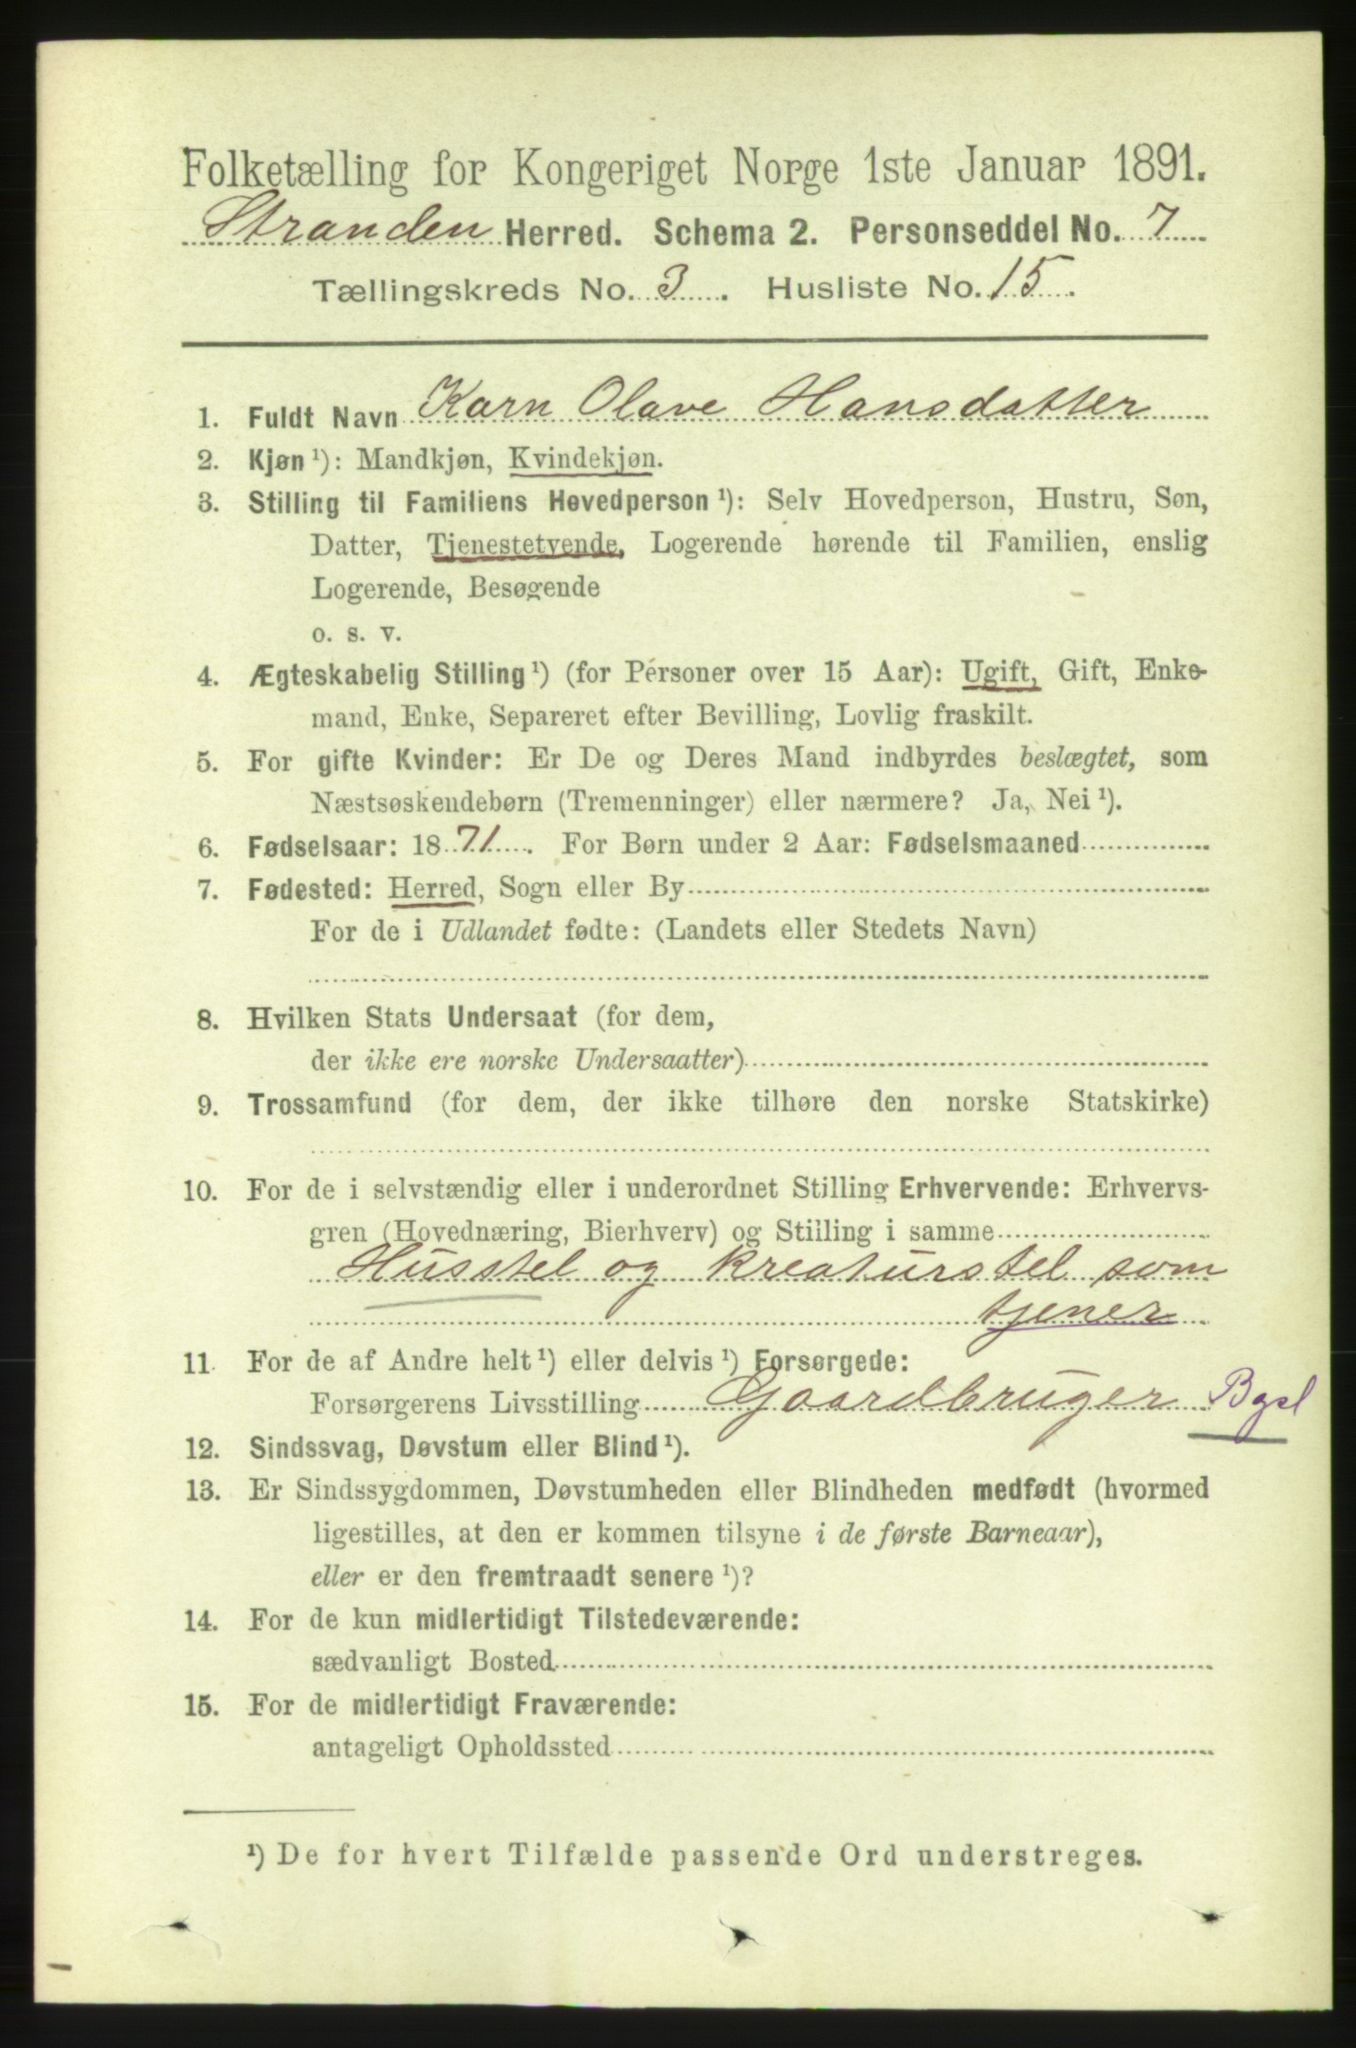 Folketælling for Kongeriget Norge 1ste Januar 1891.
Stranden Herred. Schema 2. Personseddel No. 7
Tællingskreds No. 3. Husliste No. 15.
1. Fuldt Navn Karn Olave Hansdatter
2. Kjøn ¹): Mandkjøn, Kvindekjøn.
3. Stilling til Familiens Hovedperson ¹): Selv Hovedperson, Hustru, Søn,
Datter, Tjenestetyende, Logerende hørende til Familien, enslig
Logerende, Besøgende
o. s. v.
4. Ægteskabelig Stilling ¹) (for Personer over 15 Aar): Ugift, Gift, Enke-
mand, Enke, Separeret efter Bevilling, Lovlig fraskilt.
5. For gifte Kvinder: Er De og Deres Mand indbyrdes beslægtet, som
Næstsøskendebørn (Tremenninger) eller nærmere? Ja, Nei ¹).
6. Fødselsaar: 1871. For Børn under 2 Aar: Fødselsmaaned
7. Fødested: Herred, Sogn eller By
For de i Udlandet fødte: (Landets eller Stedets Navn)
8. Hvilken Stats Undersaat (for dem,
der ikke ere norske Undersaatter)
9. Trossamfund (for dem, der ikke tilhøre den norske Statskirke)
10. For de i selvstændig eller i underordnet Stilling Erhvervende: Erhvervs-
gren (Hovednæring, Bierhverv) og Stilling i samme
Husstel og kreaturstel som
tjener
11. For de af Andre helt ¹) eller delvis ¹) Forsørgede:
Forsørgerens Livsstilling Gaardbruger Bgsl
12. Sindssvag, Døvstum eller Blind ¹).
13. Er Sindssygdommen, Døvstumheden eller Blindheden medfødt (hvormed
ligestilles, at den er kommen tilsyne i de første Barneaar),
eller er den fremtraadt senere ¹)?
14. For de kun midlertidigt Tilstedeværende:
sædvanligt Bosted
15. For de midlertidigt Fraværende:
antageligt Opholdssted
¹) De for hvert Tilfælde passende Ord understreges.